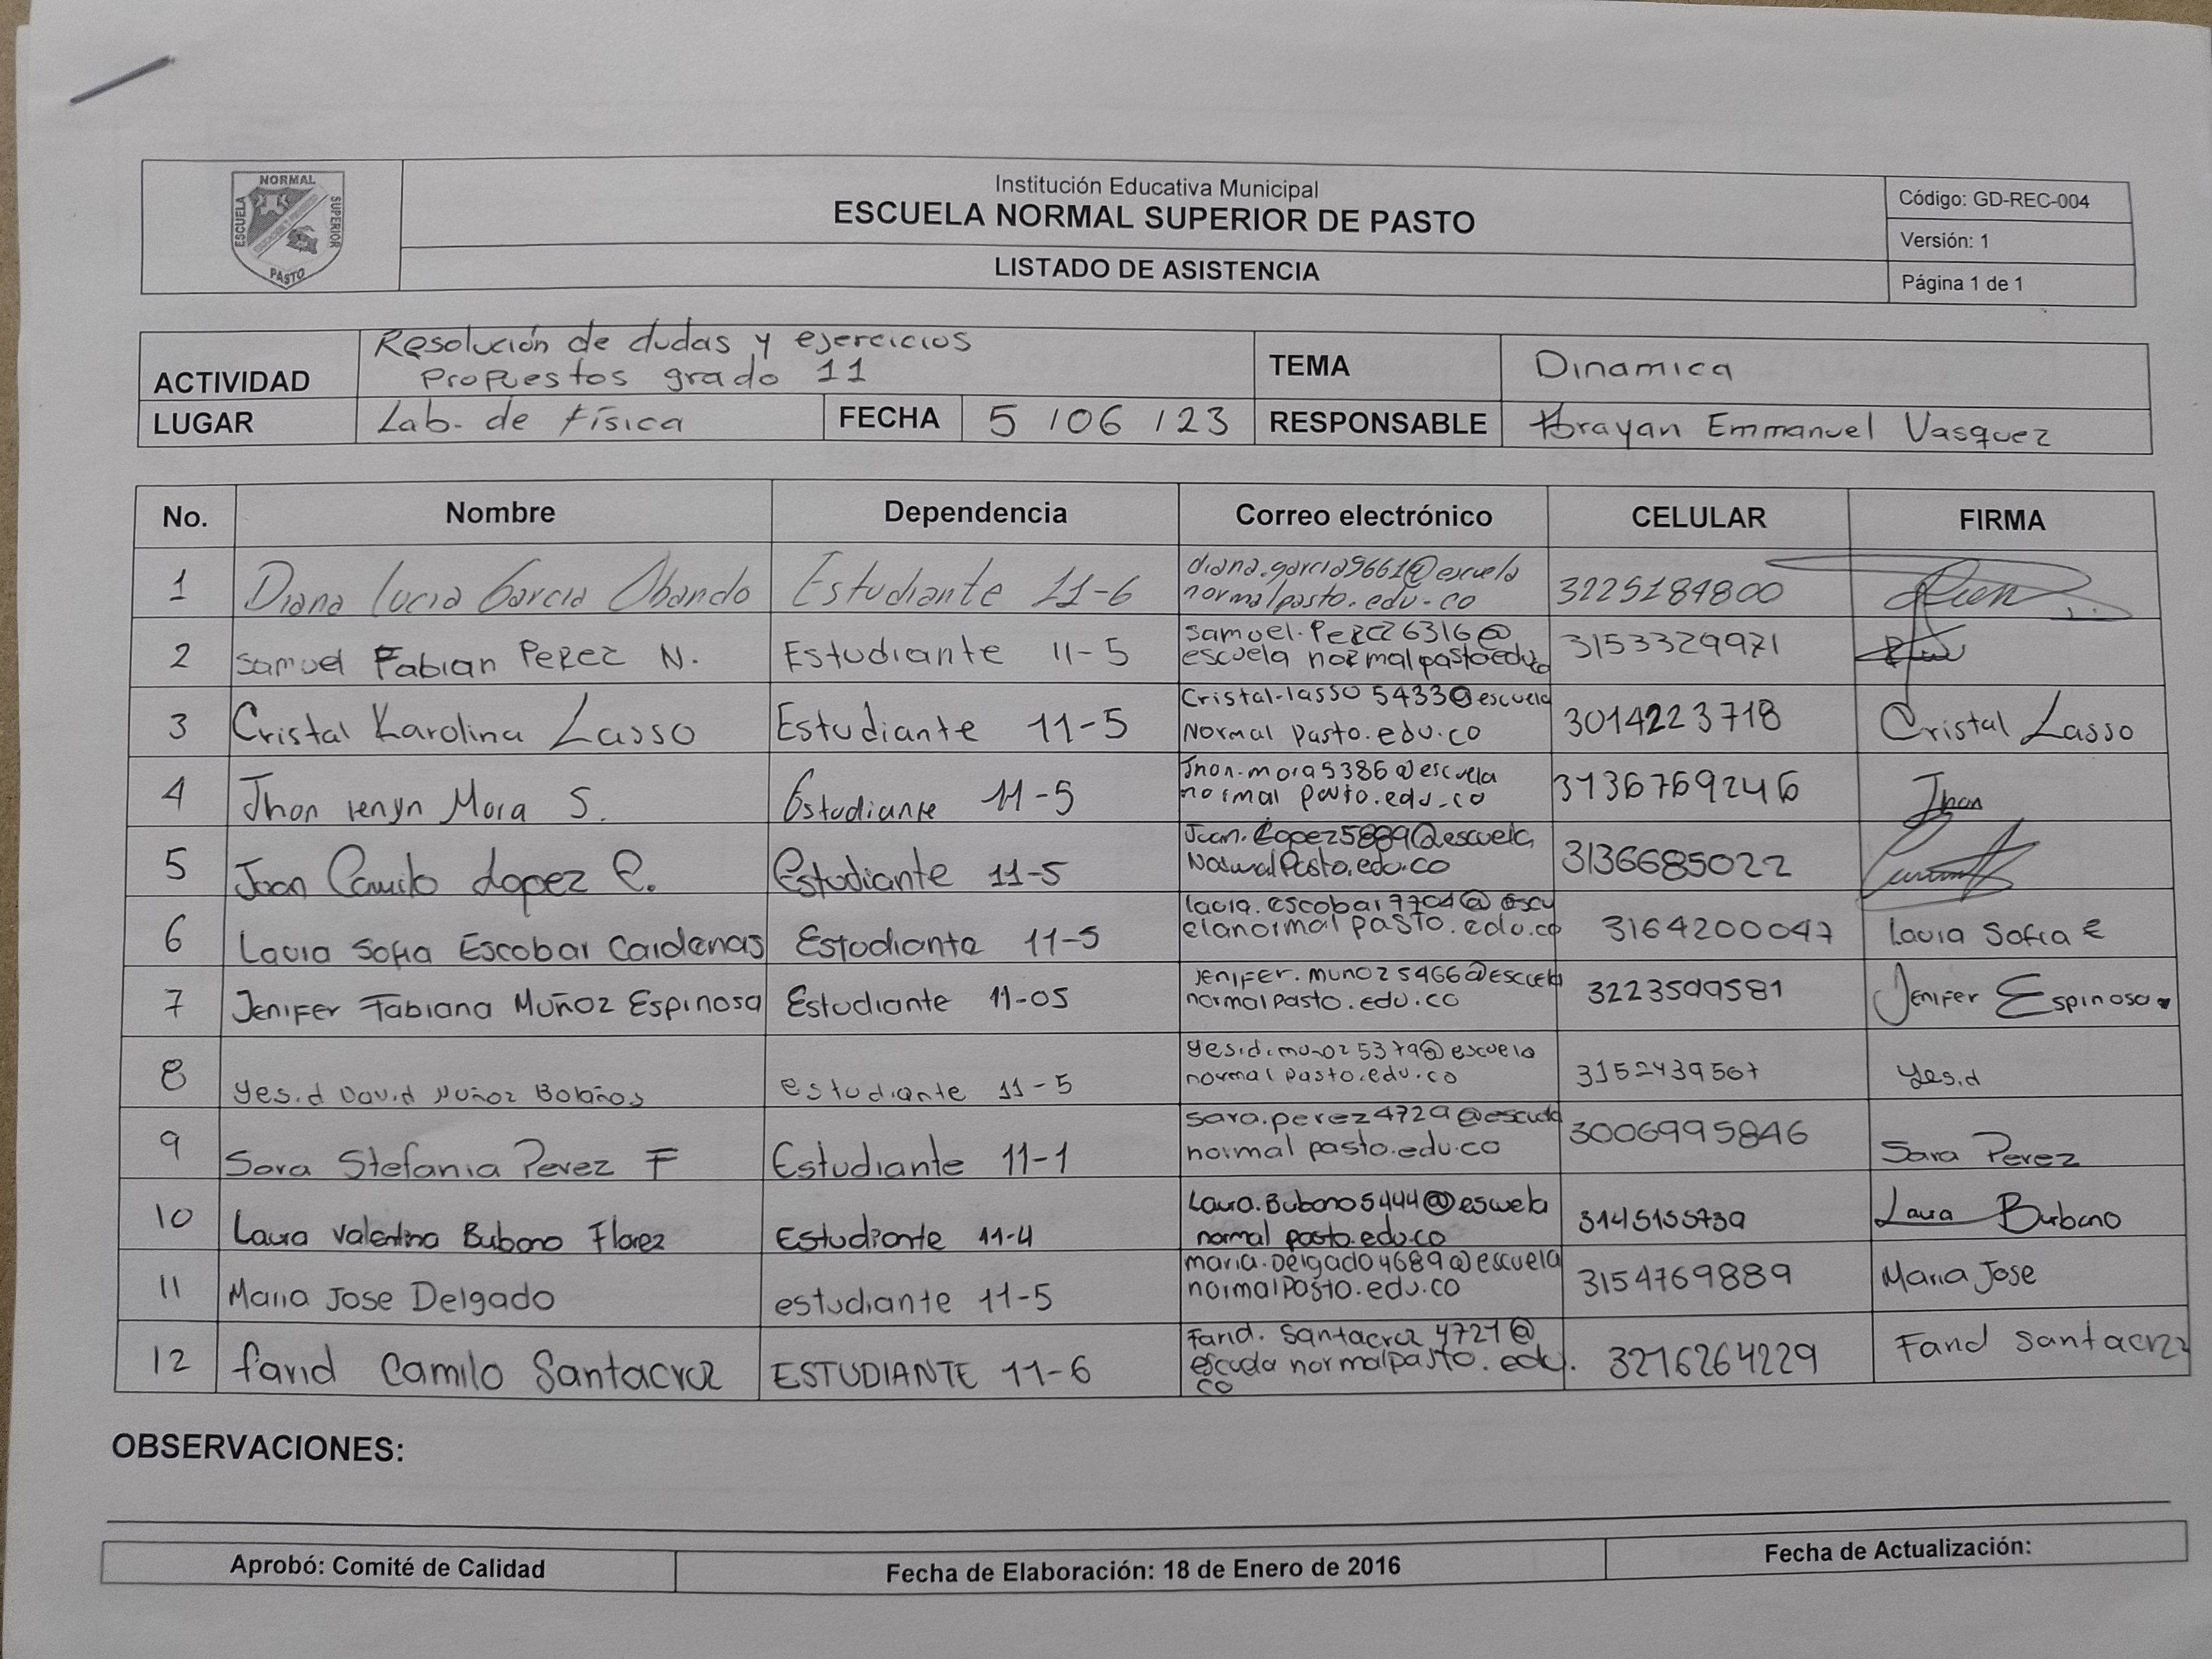 NORMAL
ESCUELA
SUPERIOR
PASTO
Institución Educativa Municipal
ESCUELA NORMAL SUPERIOR DE PASTO
LISTADO DE ASISTENCIA
Código: GD-REC-004
Versión: 1
Página 1 de 1
ACTIVIDAD
Resolución de dudas y ejercicios
Propuestos grado 11
TEMA
Dinamica
LUGAR
Lab. de física
FECHA
5 / 06 / 23
RESPONSABLE
Brayan Emmanuel Vasquez
No. Nombre Dependencia Correo electrónico CELULAR FIRMA
1 Diana Lucia Garcia Obando Estudiante 11-6
diana.garcia9661@escuela
normalpasto.edu.co
3225184800
2 Samuel Fabian Perez N. Estudiante 11-5
samuel.Perez6316@
escuela normalpastoeduco
3153329971
3 Cristal Karolina Lasso Estudiante 11-5
Cristal-lasso 5433@escuela
Normal Pasto.edu.co
3014223718 Cristal Lasso
4 Jhon Yenyn Mora S. Estudiante 11-5
Jhon.mora5386@escuela
normal pasto.edu.co
3136769246 Jhon
5 Juan Camilo Lopez E. Estudiante 11-5
Juan.Lopez5889@escuela
NormalPasto.edu.co
3136685022
6 Laura Sofia Escobar Cardenas Estudiante 11-5
laura.escobar7704@escu
elanormal pasto.edu.co
3164200047 Laura Sofia E
7 Jenifer Fabiana Muñoz Espinosa Estudiante 11-05
Jenifer.munoz5466@escuela
normalpasto.edu.co
3223599581 Jenifer Espinosa.
8 Yesid David Muñoz Bolaños estudiante 11-5
yesid.munoz5379@escuela
normal pasto.edu.co
3152439567 Yesid
9 Sara Stefania Perez F Estudiante 11-1
sara.perez4729@escuela
normal pasto.edu.co
3006995846 Sara Perez
10 Laura Valentina Bubano Florez Estudiante 11-4
Laura.Bubano5444@escuela
normal pasto.edu.co
3145155739 Laura Burbano
11 Maria Jose Delgado estudiante 11-5
maria.Delgado4689@escuela
normalPasto.edu.co
3154769889 Maria Jose
12 farid Camilo Santacruz ESTUDIANTE 11-6
Farid. Santacruz 4721@
escuela normalpasto.edu.
co
3216264229 Farid Santacruz
OBSERVACIONES:
Aprobó: Comité de Calidad
Fecha de Elaboración: 18 de Enero de 2016
Fecha de Actualización: